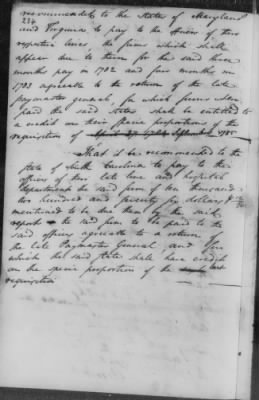 recommended to the State of Maryland
234
and Virginia to pay to the Officers of their
respective lines, the sums which shall
appear due to them for the said three
months pay in 1782 and four months in
1783 agreeable to the return of the late
paymaster general, for which sums when
paid the said States shall be entitled to
a credit on their specie proportions of the
requisition of April 27 1784 September 1785
That it be recommended to the
State of South Carolina to pay to the
officers of their late line and hospital
department the said sum of ten thousand
two hundred and seventy four dollars
mentioned to be due them by the said
report the said sum to be paid to the
said officers agreeable to a return of
the late Paymaster General and for
which the said State shall have credit
on the specie proportion of the last
requisition